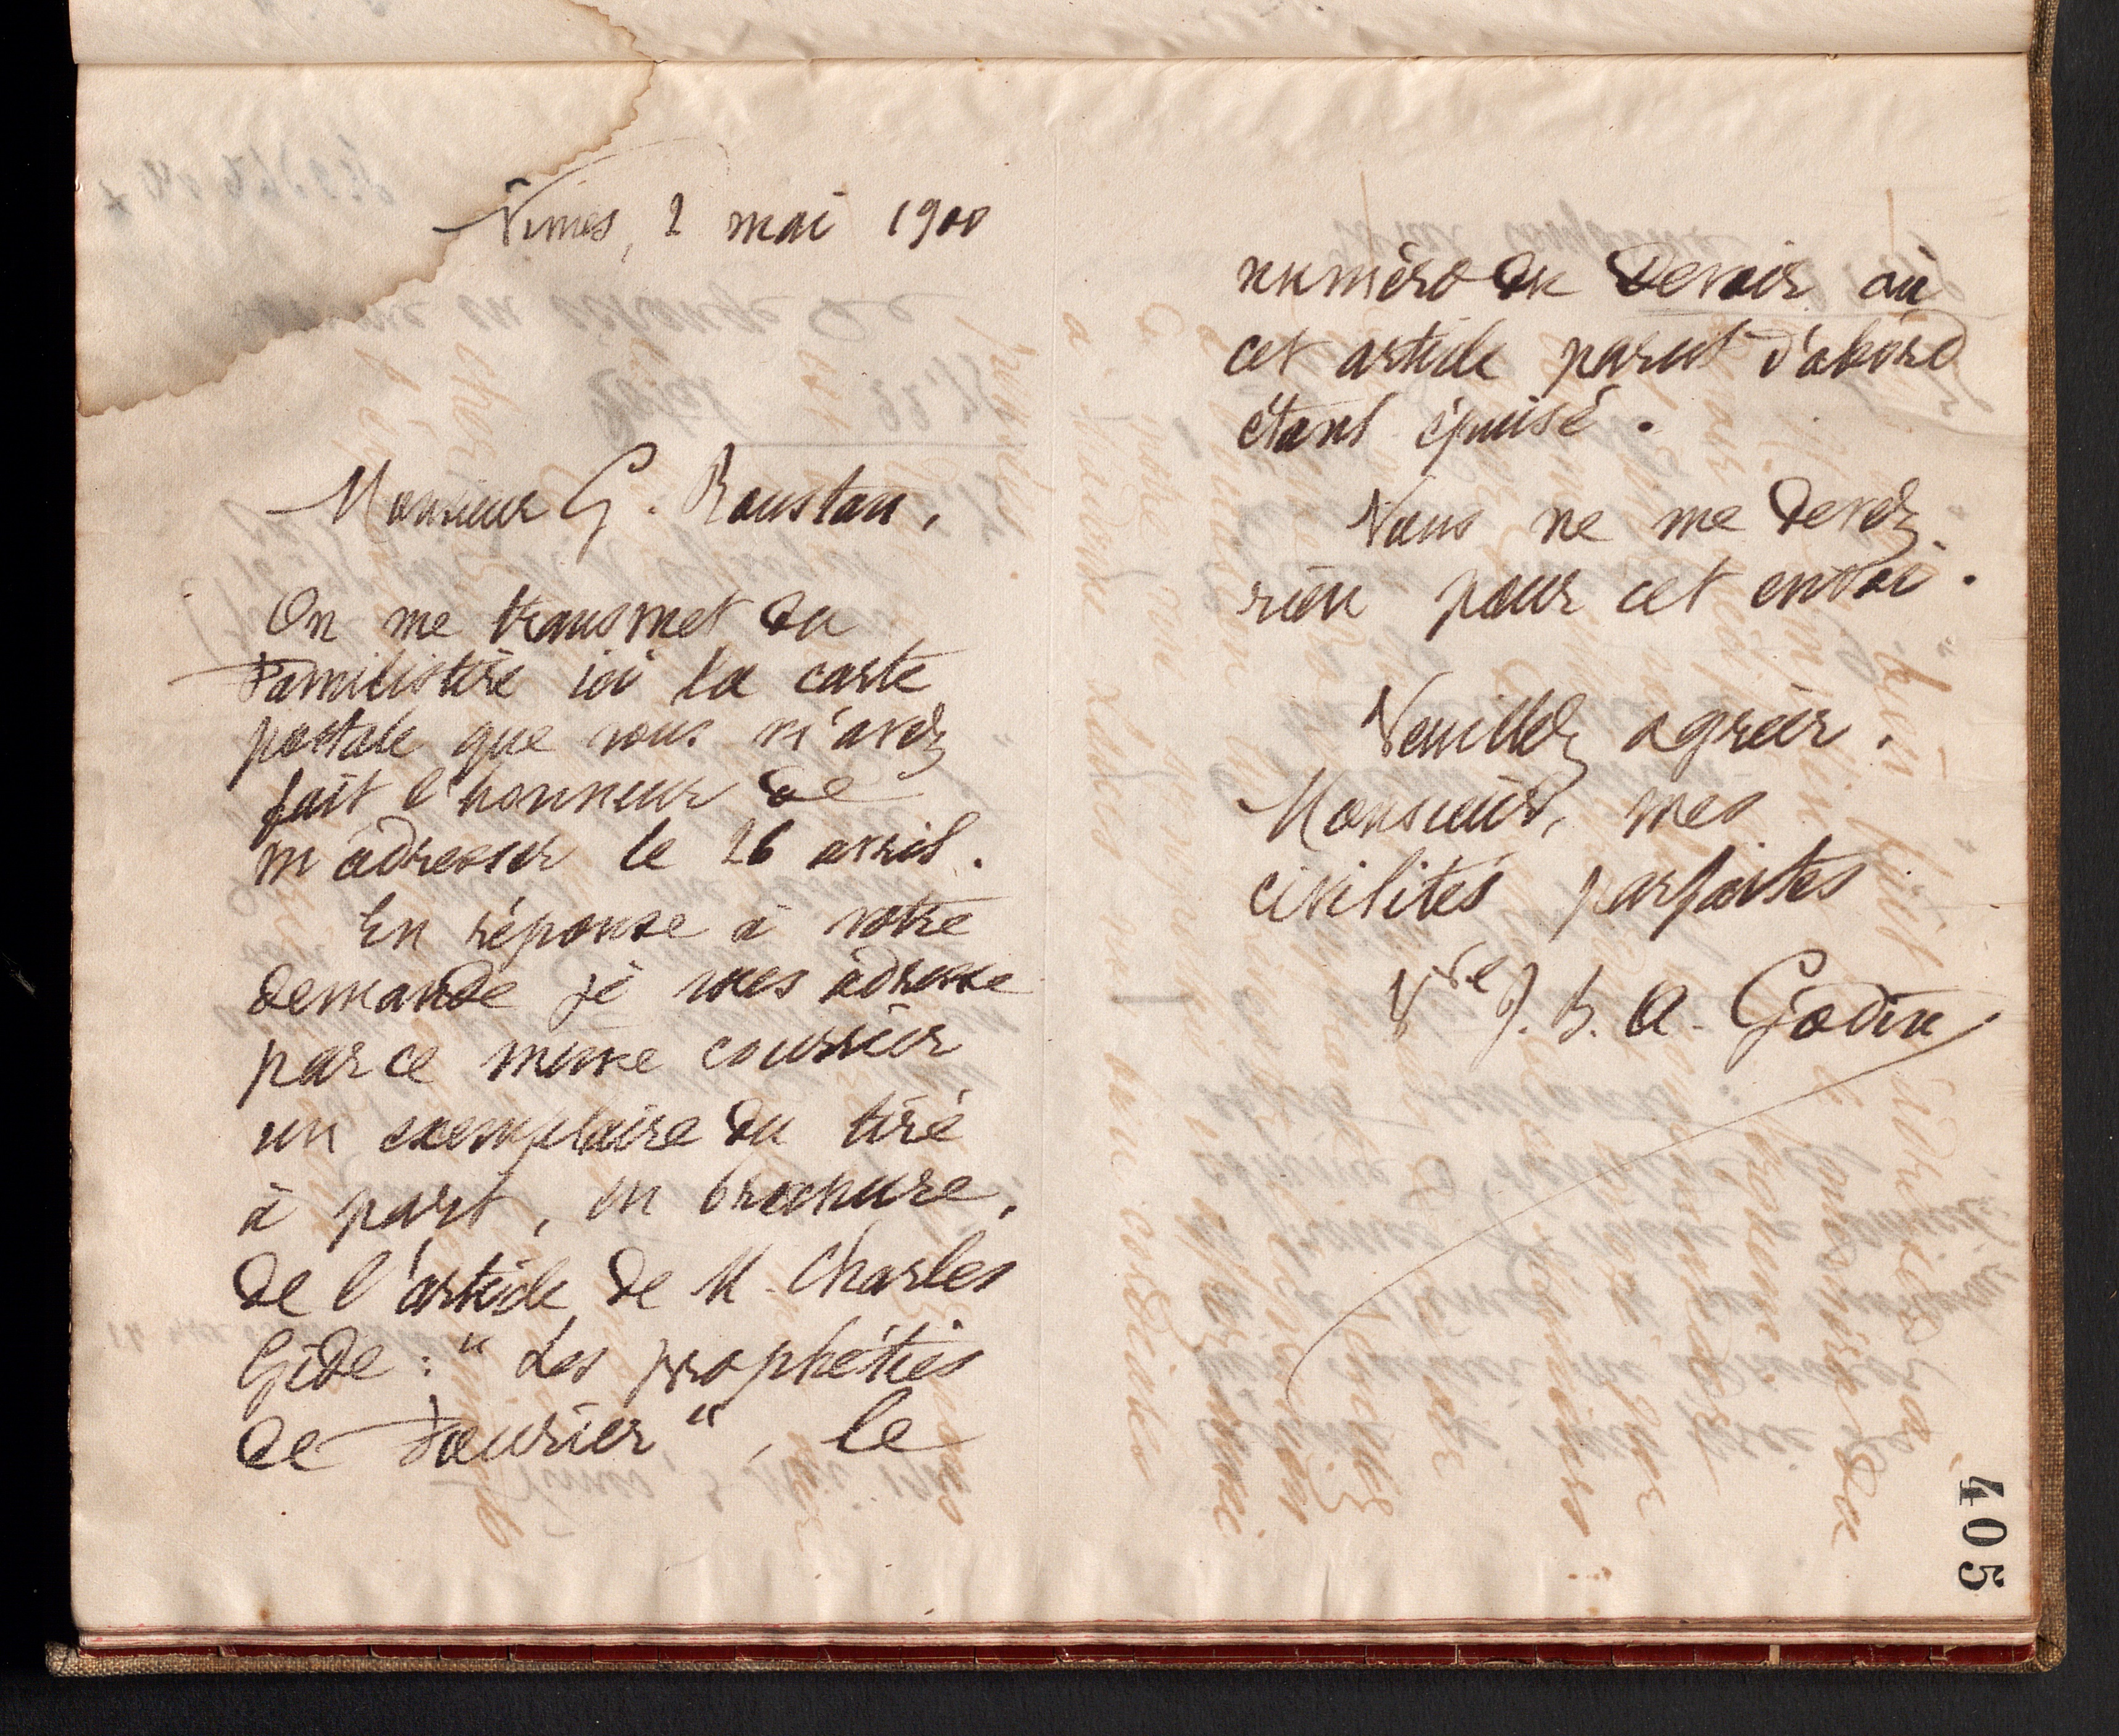 Nîmes, 2 mai 1900
Monsieur G. Roustan,
On me transmet du
Familistère ici la carte
postale que vous m'avez
fait l'honneur de
m'adresser le 26 avril.
En réponse à votre
demande je vous adresse
par ce même courrier
un exemplaire du tiré
à part, en brochure,
de l'article de M. Charles
Gide : "Les prophéties
de Fourier", le
numéro du Devoir où
cet article parut d'abord
étant épuisé.
Vous ne me devez
rien pour cet envoi.
Veuillez agréer,
Monsieur, mes
civilités parfaites
Vve J. B. A. Godin
405